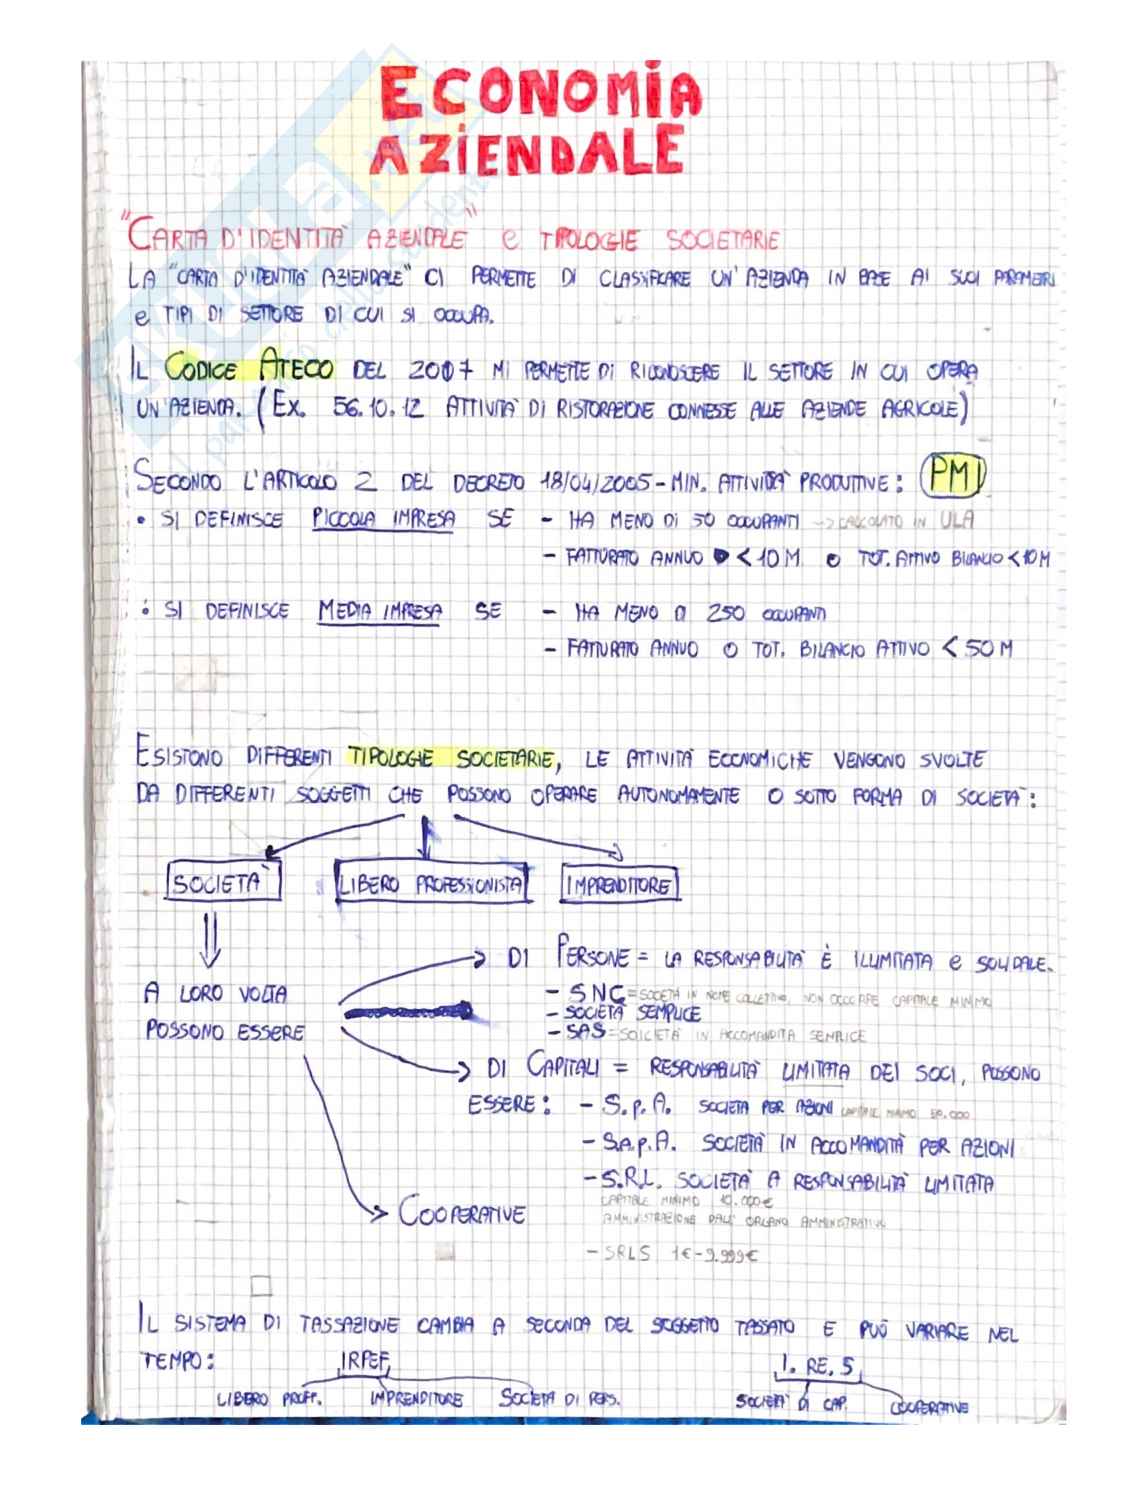 ECONOMIA
AZIENDALE
"CARTA D'IDENTITÀ AZIENDALE" e TIPOLOGIE SOCIETARIE
LA "CARTA D'IDENTITÀ AZIENDALE" CI PERMETTE DI CLASSIFICARE UN'AZIENDA IN BASE AI SUOI PARAMETRI
e TIPI DI SETTORE DI CUI SI OCCUPA.
IL CODICE ATECO DEL 2007 MI PERMETTE DI RICONOSCERE IL SETTORE IN CUI OPERA
UN'AZIENDA. (EX. 56.10.12 ATTIVITÀ DI RISTORAZIONE CONNESSE ALLE AZIENDE AGRICOLE)
SECONDO L'ARTICOLO 2 DEL DECRETO 18/04/2005 - MIN. ATTIVITÀ PRODUTTIVE: PMI
• SI DEFINISCE PICCOLA IMPRESA SE - HA MENO DI 50 OCCUPANTI -> CALCOLATO IN ULA
- FATTURATO ANNUO < 10 M O TOT. ATTIVO BILANCIO < 10 M
• SI DEFINISCE MEDIA IMPRESA SE - HA MENO DI 250 OCCUPANTI
- FATTURATO ANNUO O TOT. BILANCIO ATTIVO < 50 M
ESISTONO DIFFERENTI TIPOLOGIE SOCIETARIE, LE ATTIVITÀ ECONOMICHE VENGONO SVOLTE
DA DIFFERENTI SOGGETTI CHE POSSONO OPERARE AUTONOMAMENTE O SOTTO FORMA DI SOCIETÀ:
SOCIETÀ LIBERO PROFESSIONISTA IMPRENDITORE
DI PERSONE = LA RESPONSABILITÀ È ILLIMITATA e SOLIDALE.
A LORO VOLTA
POSSONO ESSERE
- SNC = SOCIETÀ IN NOME COLLETTIVO, NON OCCORRE CAPITALE MINIMO
- SOCIETÀ SEMPLICE
- SAS = SOCIETÀ IN ACCOMANDITA SEMPLICE
DI CAPITALI = RESPONSABILITÀ LIMITATA DEI SOCI, POSSONO
ESSERE: - S.p.A. SOCIETÀ PER AZIONI CAPITALE MINIMO 50.000
- S.A.p.A. SOCIETÀ IN ACCOMANDITÀ PER AZIONI
- S.R.L. SOCIETÀ A RESPONSABILITÀ LIMITATA
CAPITALE MINIMO 10.000€
AMMINISTRAZIONE DALL' ORGANO AMMINISTRATIVO
COOPERATIVE
- SRLS 1€ - 9.999€
IL SISTEMA DI TASSAZIONE CAMBIA A SECONDA DEL SOGGETTO TASSATO E PUÒ VARIARE NEL
TEMPO: IRPEF I.RE.S
LIBERO PROFF. IMPRENDITORE SOCIETÀ DI PERS. SOCIETÀ DI CAP. COOPERATIVE